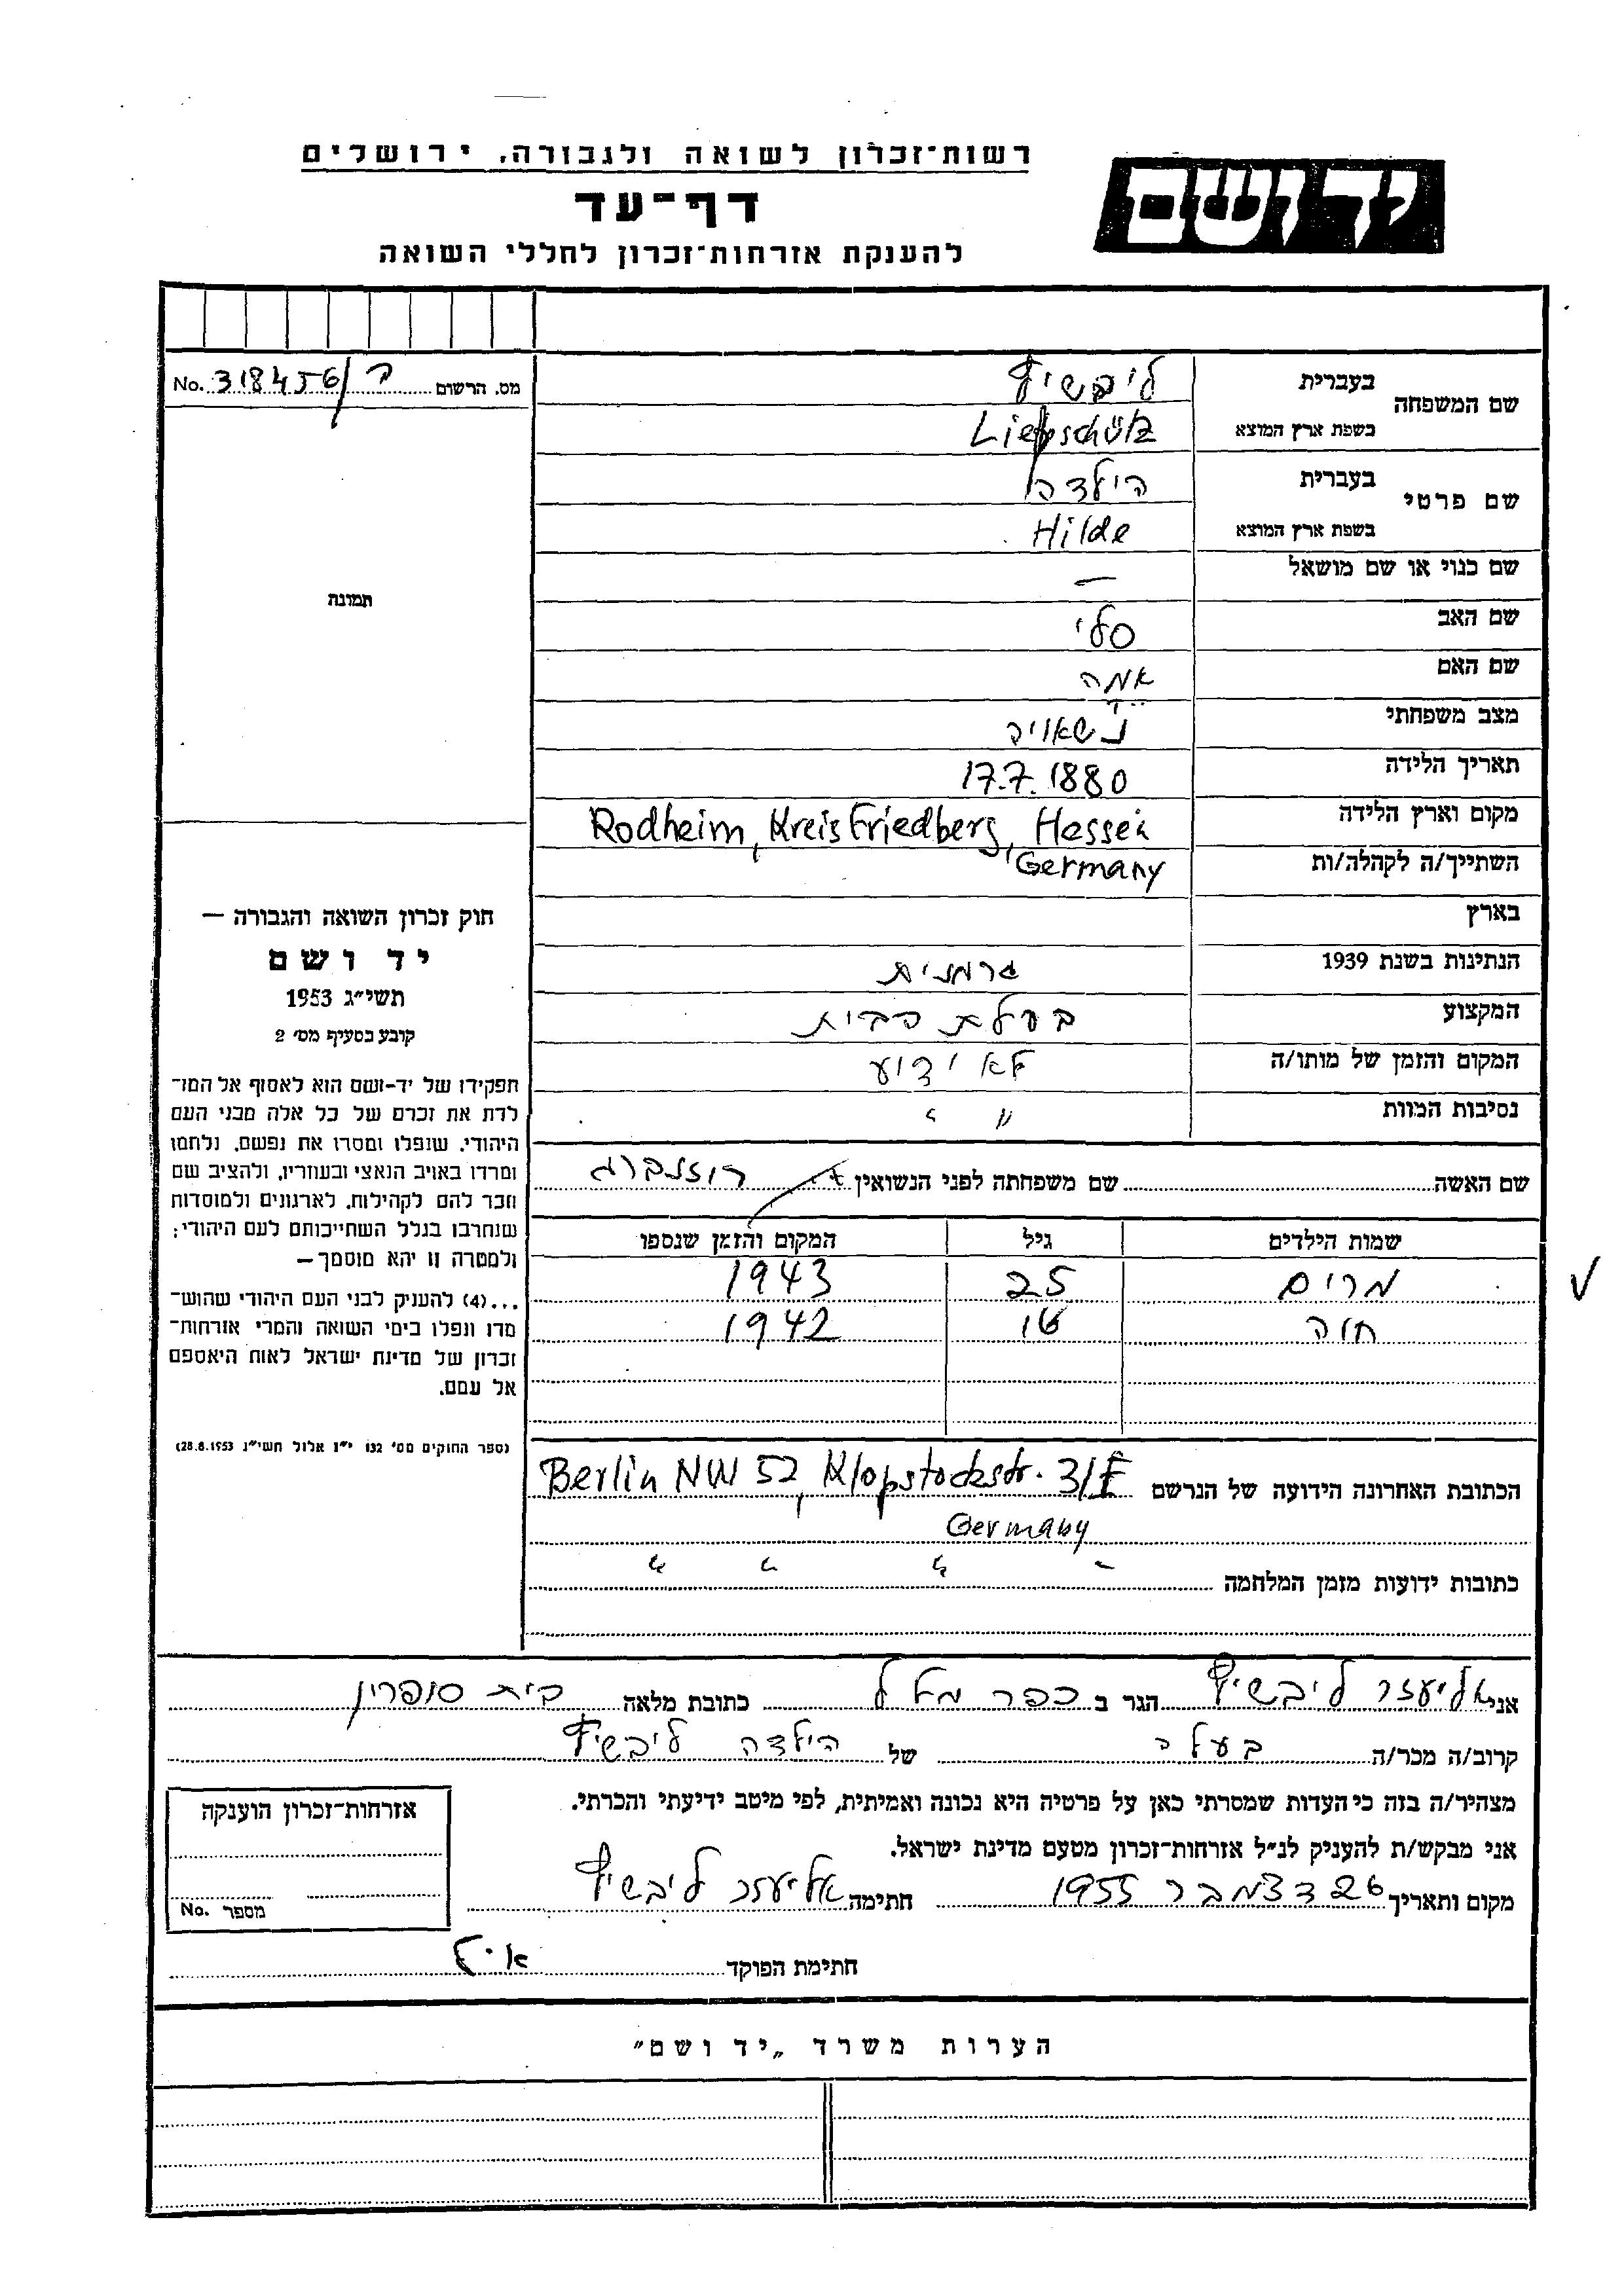 יד ושם
רשות־זכרון לשואה ולגבורה, ירושלים
דף־עד
להענקת אזרחות־זכרון לחללי השואה
מס. הרשום No. 318456/ה
שם המשפחה
בעברית ליבשיץ
בשפת ארץ המוצא Liebschütz
שם פרטי
בעברית הילדה
בשפת ארץ המוצא Hilde
שם כנוי או שם מושאל —
שם האב סלי
שם האם אמה
מצב משפחתי נשואה
תאריך הלידה 17.7.1880
מקום וארץ הלידה Rodheim, Kreis Friedberg, Hessen
השתייך/ה לקהלה/ות Germany
בארץ
הנתינות בשנת 1939 גרמנית
המקצוע בעלת הבית
המקום והזמן של מותו/ה לא ידוע
נסיבות המוות " "
שם האשה שם משפחתה לפני הנשואין רוזנברג
שמות הילדים גיל המקום והזמן שנספו
מרים 25 1943
חוה 16 1942
הכתובת האחרונה הידועה של הנרשם Berlin NW 52, Klopstockstr. 3/I
Germany
כתובות ידועות מזמן המלחמה " " " "
תמונה
חוק זכרון השואה והגבורה —
יד ושם
תשי״ג 1953
קובע בסעיף מס׳ 2
תפקידו של יד-ושם הוא לאסוף אל המו־
לדת את זכרם של כל אלה מבני העם
היהודי, שנפלו ומסרו את נפשם, נלחמו
ומרדו באויב הנאצי ובעוזריו, ולהציב שם
וזכר להם לקהילות, לארגונים ולמוסדות
שנחרבו בגלל השתייכותם לעם היהודי;
ולמטרה זו יהא מוסמך —
...(4) להעניק לבני העם היהודי שהוש־
מדו ונפלו בימי השואה והמרי אזרחות־
זכרון של מדינת ישראל לאות היאספם
אל עמם.
(ספר החוקים מס׳ 132 י״ז אלול תשי״ג 28.8.1953)
אני אליעזר ליבשיץ הגר ב כפר מל״ל כתובת מלאה בית סופרין
קרוב/ה מכר/ה בעלה של הילדה ליבשיץ
מצהיר/ה בזה כי העדות שמסרתי כאן על פרטיה היא נכונה ואמיתית, לפי מיטב ידיעתי והכרתי.
אני מבקש/ת להעניק לנ״ל אזרחות־זכרון מטעם מדינת ישראל.
מקום ותאריך 26 דצמבר 1955 חתימה אליעזר ליבשיץ
חתימת הפוקד
אזרחות־זכרון הוענקה
מספר No.
הערות משרד „יד ושם״